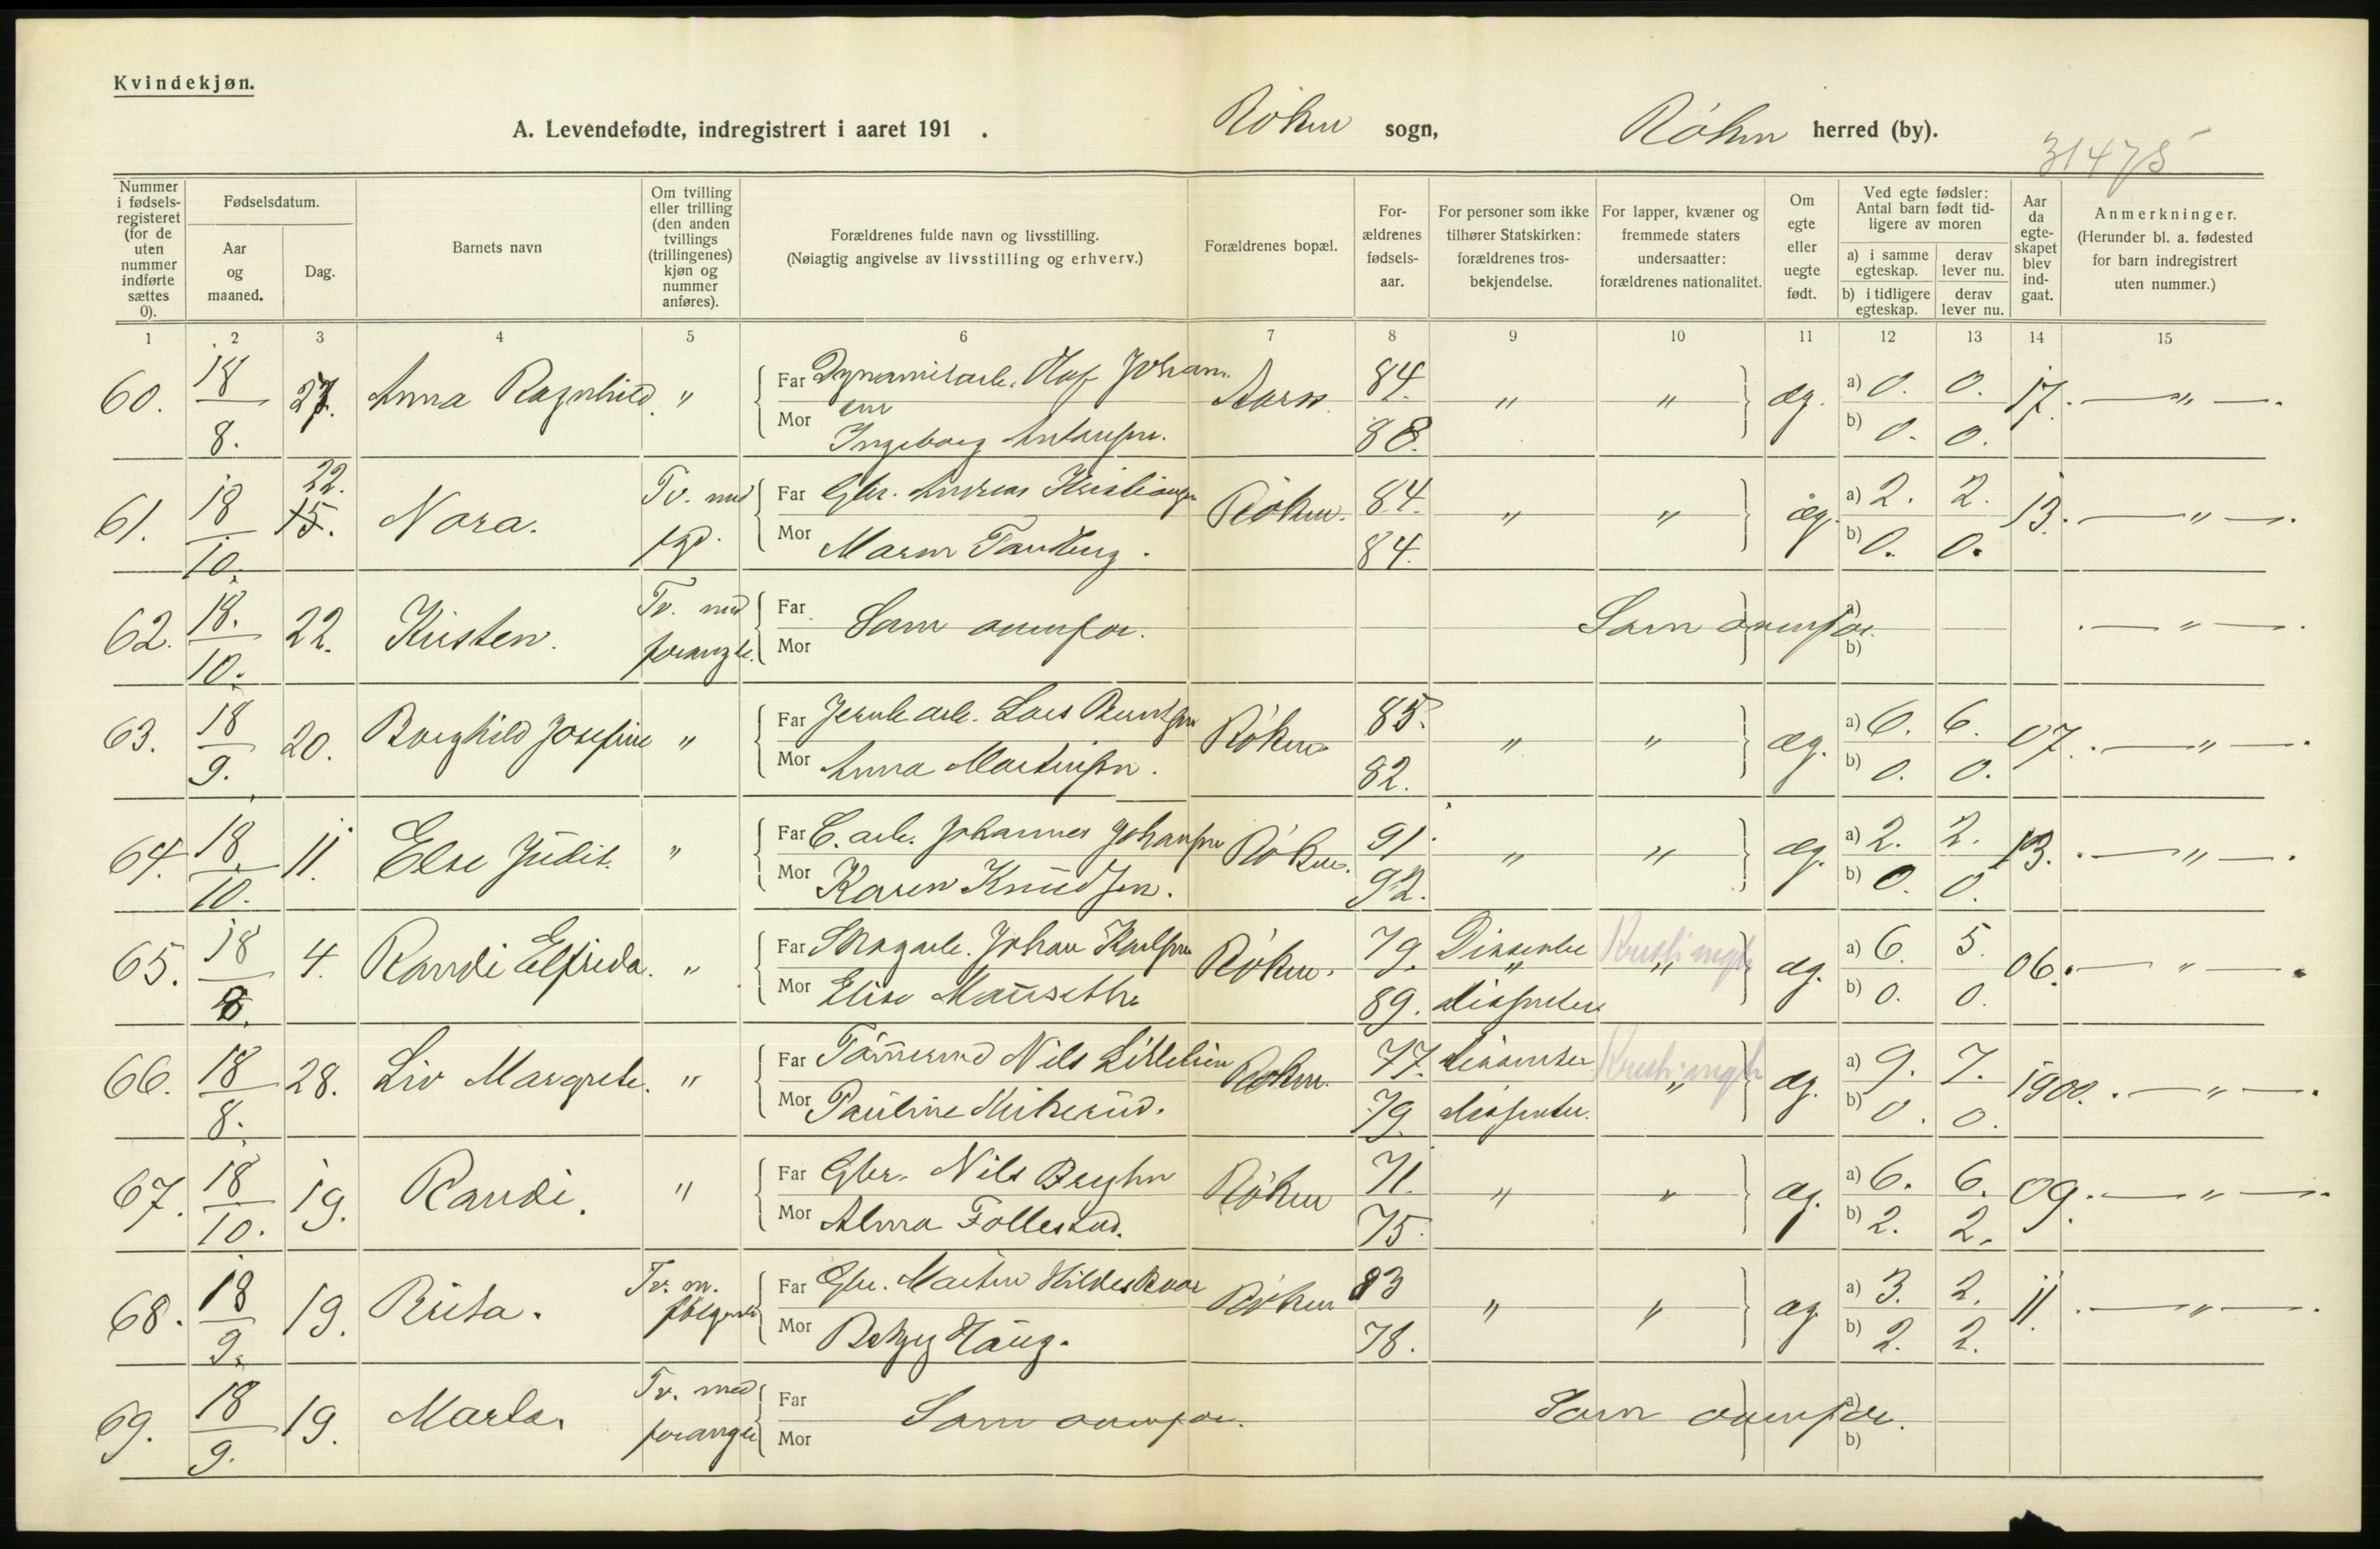 Kvindekjøn.
A. Levendefødte, indregistrert i aaret 191 . Røken sogn, Røken herred (by).
31475
Nummer i fødsels-registeret (for de uten nummer indførte sættes 0).
Fødselsdatum.
Aar og maaned.
Dag.
Barnets navn
Om tvilling eller trilling (den anden tvillings (trillingenes) kjøn og nummer anføres).
Forældrenes fulde navn og livsstilling.
(Nøiagtig angivelse av livsstilling og erhverv.)
Forældrenes bopæl.
For-ældrenes fødsels-aar.
For personer som ikke tilhører Statskirken: forældrenes tros-bekjendelse.
For lapper, kvæner og fremmede staters undersaatter: forældrenes nationalitet.
Om egte eller uegte født.
Ved egte fødsler: Antal barn født tid-ligere av moren
a) i samme egteskap.
derav lever nu.
b) i tidligere egteskap.
derav lever nu.
Aar da egte-skapet blev ind-gaat.
Anmerkninger.
(Herunder bl. a. fødested for barn indregistrert uten nummer.)
1 2 3 4 5 6 7 8 9 10 11 12 13 14 15
60. 18/8. 27. Anna Ragnhild. " Far Dynamitarb. Olaf Johansen Aaros. 84. " " æg. a) 0. 0. 17. — " —.
Mor Ingeborg Antonsen. 88. b) 0. 0.
61. 18/10. 22. 15. Nora. Tv. med Far Gbr. Andreas Kristiansen Røken. 84. " " æg. a) 2. 2. 13. — " —.
Mor Maren Tandberg. 84. b) 0. 0.
62. 18./10. 22. Kirsten. Tv. med forangte. Far Mor Som ovenfor. Som ovenfor. a) b) — " —.
63. 18/9. 20. Borghild Josefine " Far Jernb. arb. Lars Berntsen Røken 85. " " æg. a) 6. 6. 07. — " —.
Mor Anna Martinsen. 82. b) 0. 0.
64. 18/10. 11. Else Judit. " Far C. arb. Johannes Johansen Røken. 91. " " æg. a) 2. 2. 13. — " —.
Mor Karen Knudsen. 92. b) 0. 0.
65. 18/8. 4. Randi Elfrida. " Far Skogarb. Johan Karlsen Røken. 79. Dissenter " æg. a) 6. 5. 06. — " —.
Mor Elise Mauseth 89. dissenter b) 0. 0.
66. 18/8. 28. Liv Margrete. " Far Tømmermd Nils Lillelien Røken. 77. dissenter " æg. a) 9. 7. 1900. — " —.
Mor Pauline Mikerud. 79 dissenter. b) 0. 0.
67. 18/10. 19. Randi. " Far Gbr. Nils Bryhn Røken 71. " " æg. a) 6. 6. 09. — " —.
Mor Alma Follestad. 75. b) 2. 2.
68. 18/9. 19. Brita. Tv. m. følgende Far Gbr. Martin Hildeskoar Røken 83 " " æg a) 3. 2. 11. — " —.
Mor Betzy Haug. 78. b) 2. 2.
69. 18/9. 19. Marta. Tv. med forangte Far Mor Som ovenfor. Som ovenfor. a) b)